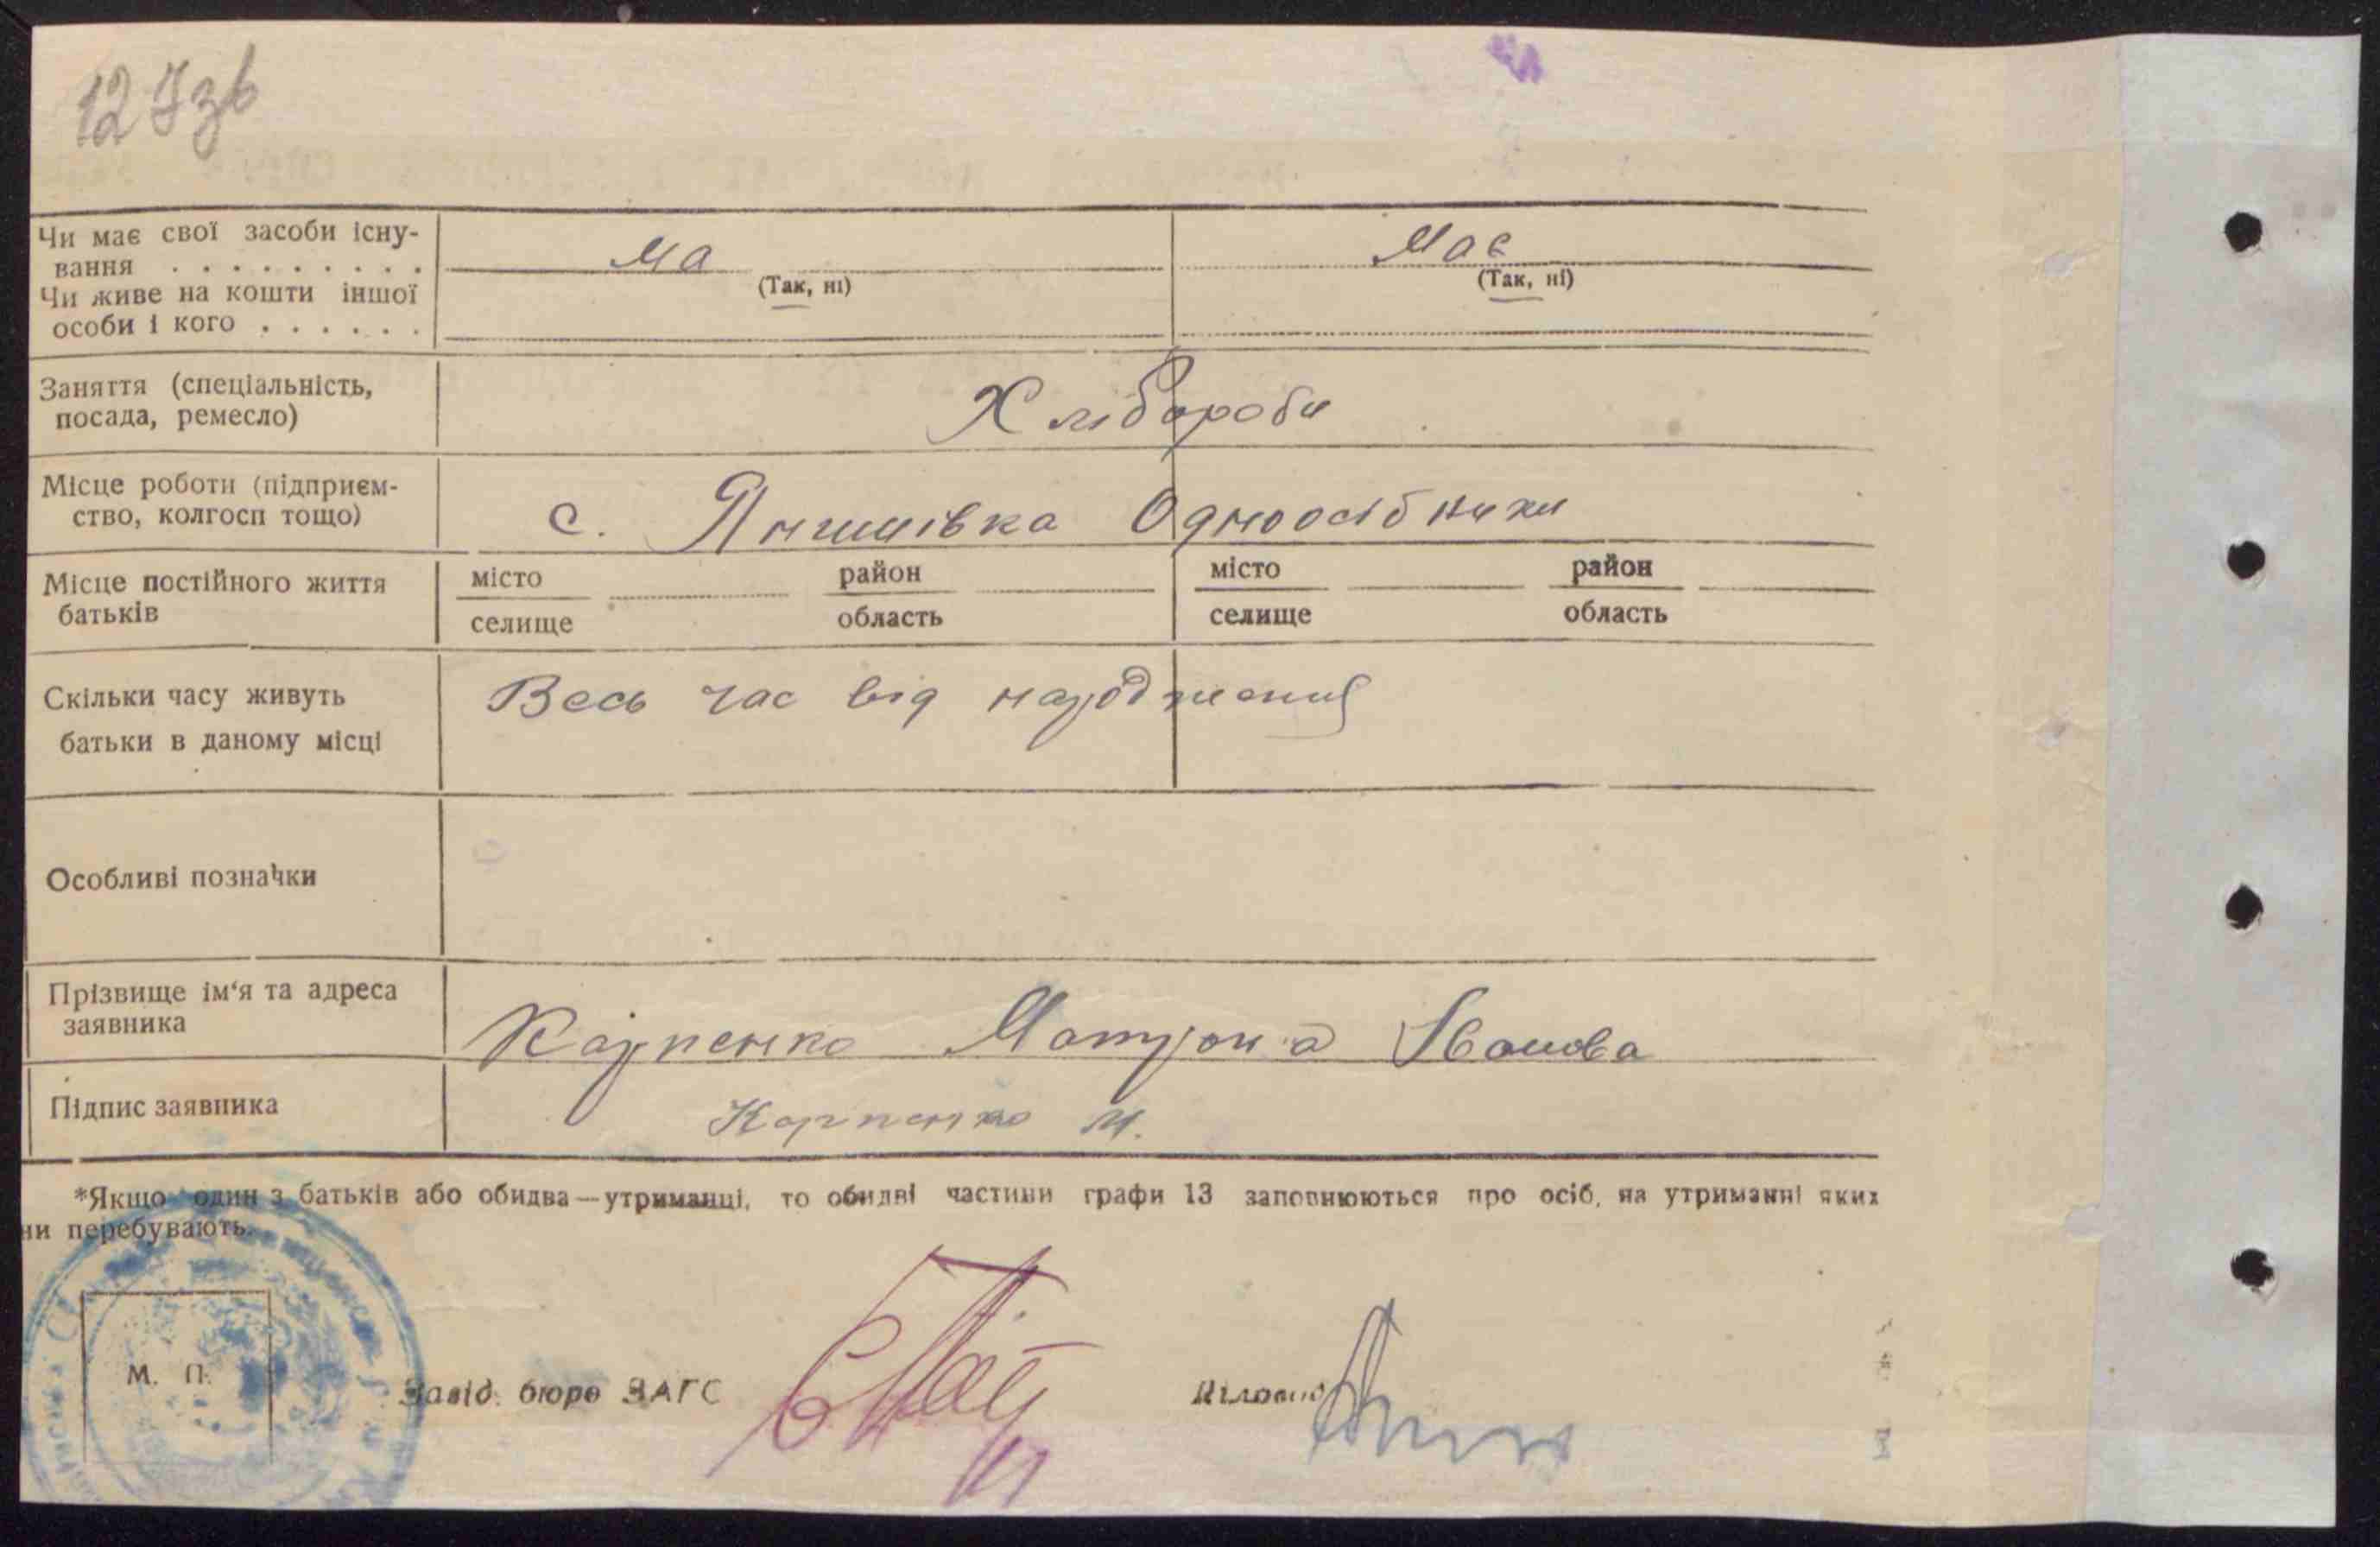 127зв
Чи має свої засоби існу-
вання . . . . . . . . .
Ма
Має
(Так, ні)
(Так, ні)
Чи живе на кошти іншої
особи і кого . . . . . .
Заняття (спеціальність,
посада, ремесло)
Хлібороби
Місце роботи (підприєм-
ство, колгосп тощо)
с. Янишівка Одноосібники
Місце постійного життя
батьків
місто район місто район
селище область селище область
Скільки часу живуть
батьки в даному місці
Весь час від народження
Особливі позначки
Прізвище ім'я та адреса
заявника
Карпенко Матрона Іванова
Підпис заявника
Карпенко М.
*Якщо один з батьків або обидва—утриманці, то обидві частини графи 13 заповнюються про осіб, на утриманні яких
ни перебувають.
М. П.
Завід. бюро ЗАГС
Діловод